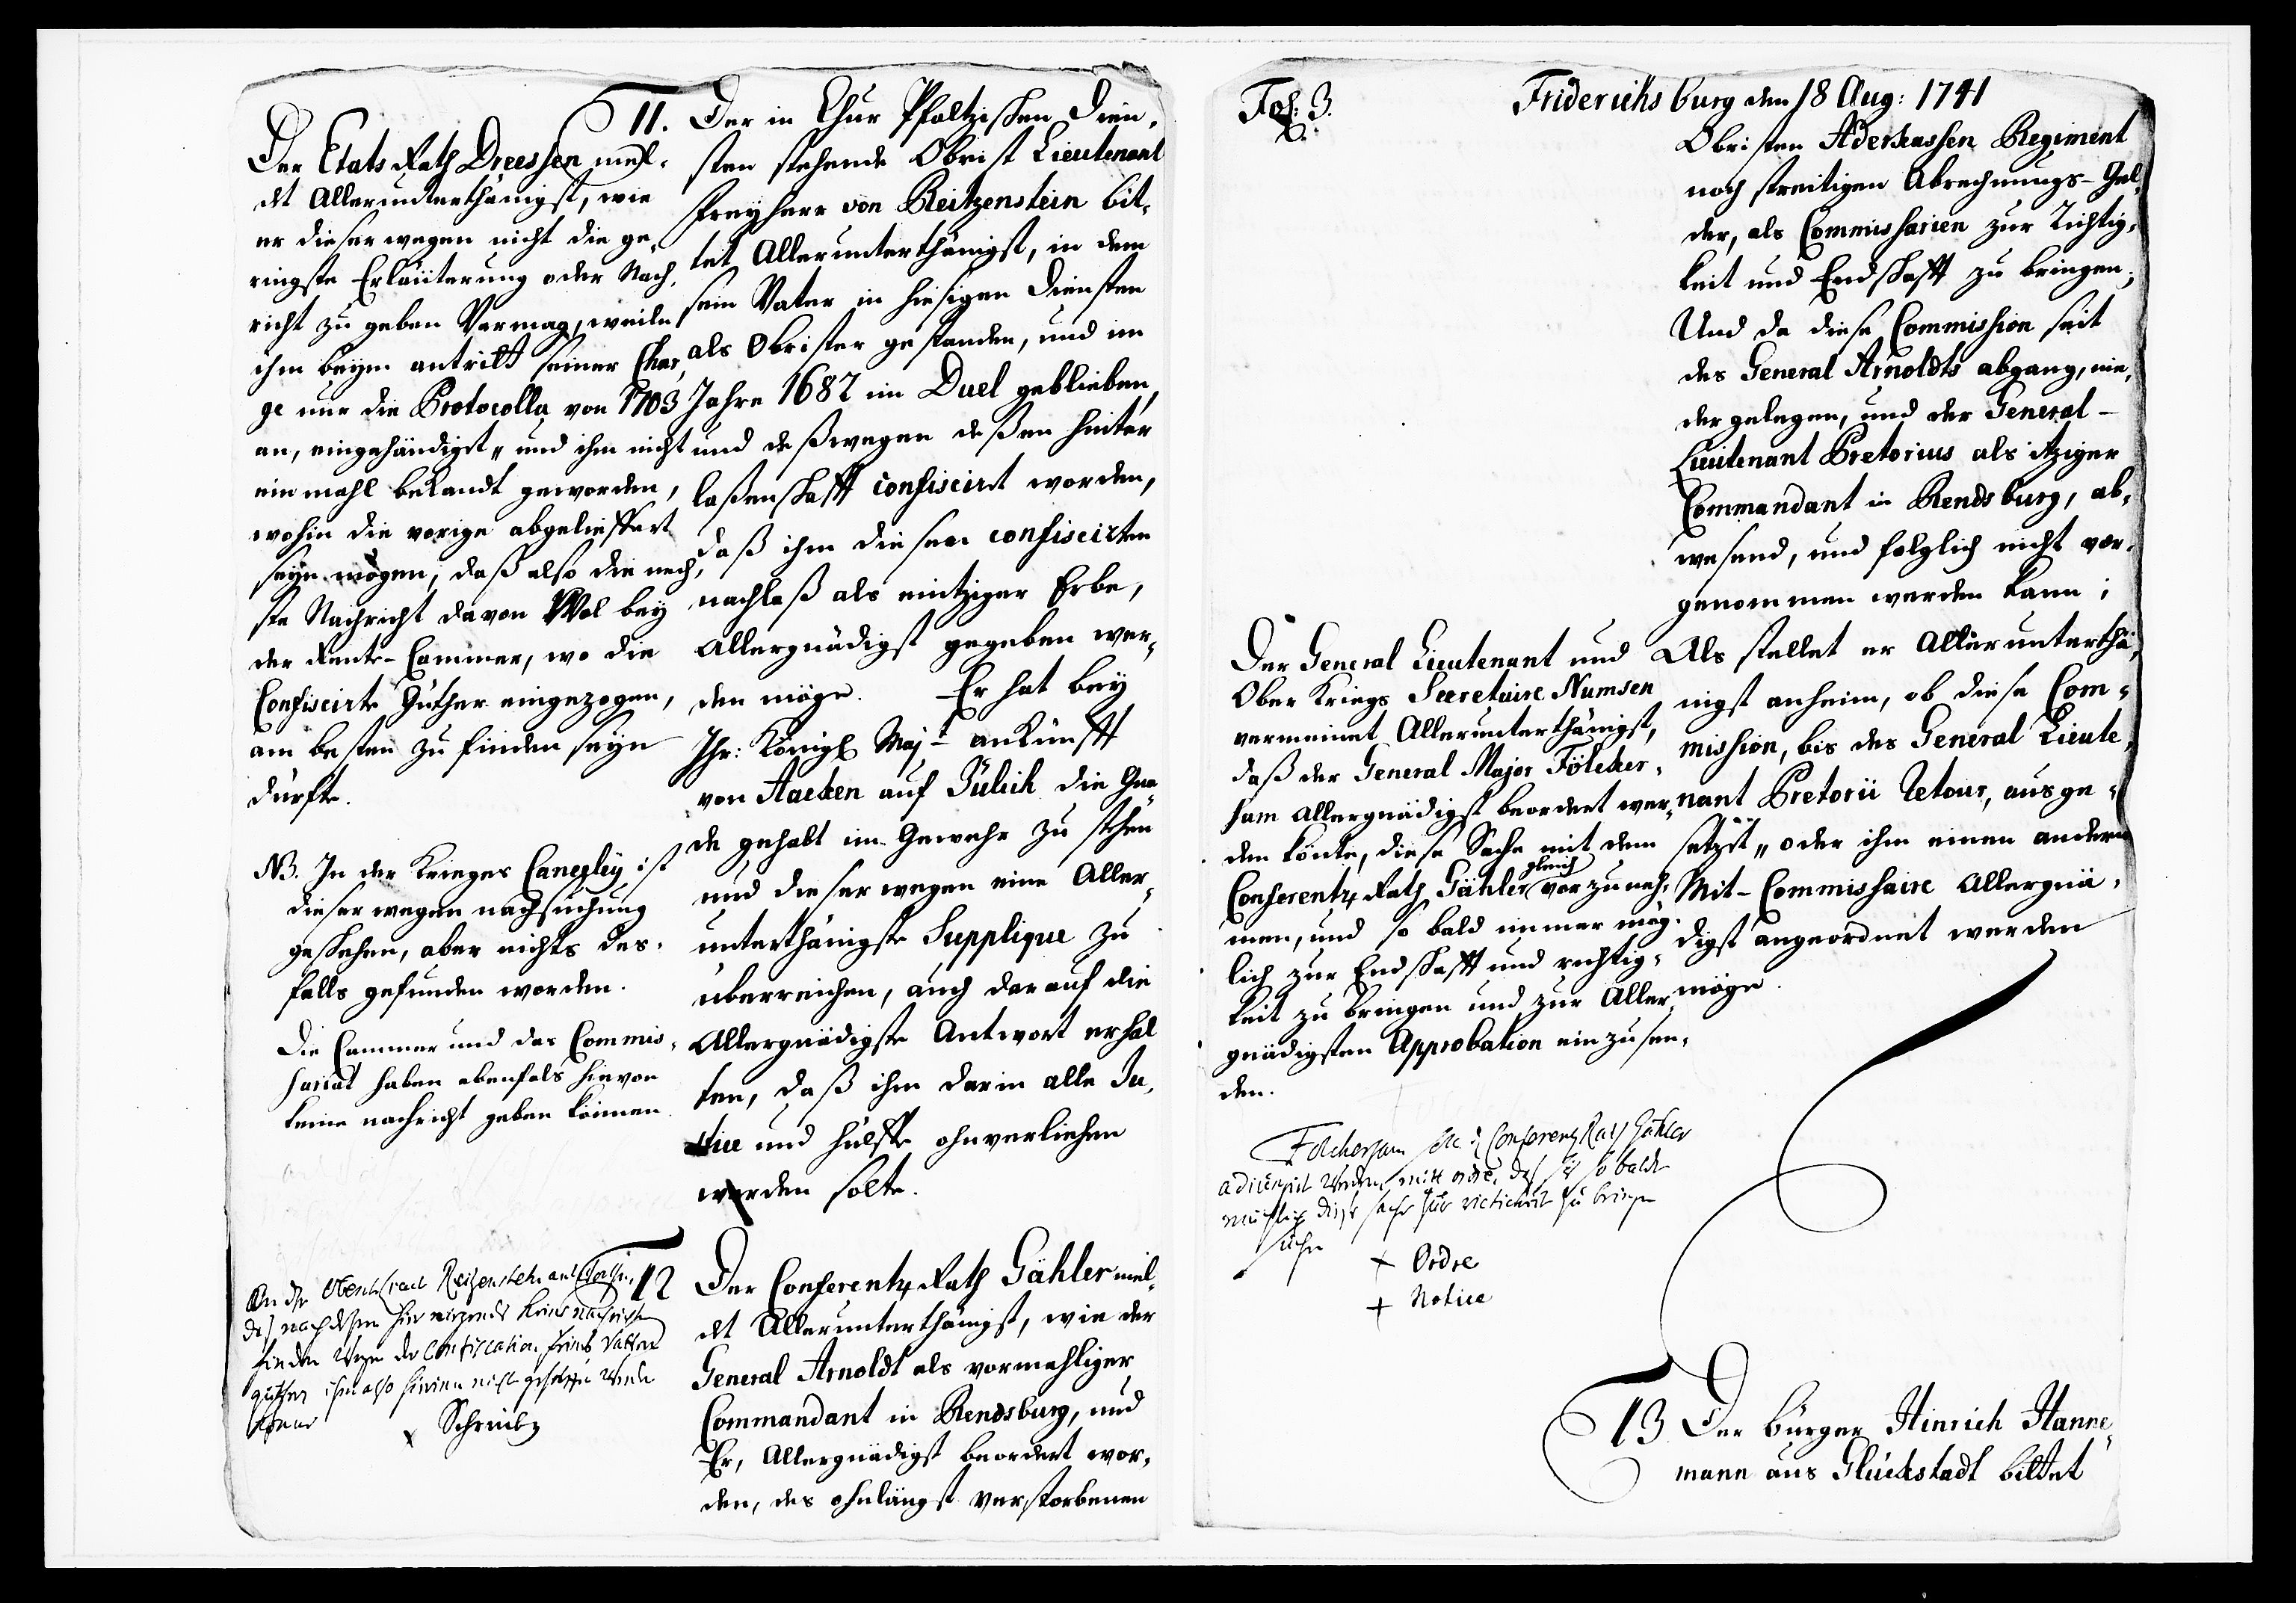 11.
Der Etats Rath Dreessen mel-
det Allerunterthänigst, wie
er dieserwegen nicht die ge-
ringste Erläuterung oder Nach-
richt zu geben Vermag, weiln
ihm beym antritt seiner Char-
ge nur die Protocolla von 1703
an, eingehändigt, und ihm nicht
einmahl bekandt geworden,
wohin die vorige abgelieffert
seyn mögen, daß also die nech-
ste Nachricht davon Wol bey
der Rente-Cammer, wo die
Confiscirte Güther eingezogen,
am besten zu finden seyn
dürffte.
NB. In der Krieges Cantzley ist
dieserwegen nachsuchung
geschehen, aber nichts des-
falls gefunden worden.
Die Cammer und das Commis-
sariat haben ebenfals hievon
keine nachricht geben können
Der in Chur Pfaltzischen Dien-
sten stehende Obrist Lieutenant
Freyherr von Reitzenstein bit-
tet Allerunterthänigst, in dem
sein Vater in hiesigen Diensten
als Obrister gestanden, und im
Jahre 1682 im Duel geblieben,
und deßwegen deßen hinter
laßenschafft confiscirt worden,
daß ihm diesen confiscirten
nachlaß als eintziger Erbe,
Allergnädigst gegeben wer-
den möge. Er hat bey
Ihr: Königl Mayt ankunfft
von Aacken auf Jülich die Gna-
de gehabt im Gewehr zu stehen
und dieserwegen eine Aller-
unterthänigste Supplique zu
überreichen, auch darauf die
Allergnädigste Antwort erhal
ten, daß ihm darin alle Ju-
stice und hülffe ohnverliehen
werden solte.
finden wegen der Confiscation seines Vatters
x Schreiben
12
Der Conferentz Rath Gähler mel-
det Allerunterthänigst, wie der
General Arnoldt als vormahliger
Commandant in Rendsburg, und
Er, Allergnädigst beordert wor-
den, des ohnlängst verstorbenen
Fol: 3.
Friderichsburg den 18 Aug: 1741
Obristen Aderkassen Regiment
noch streitigen Abrechnungs-Gel-
der, als Commissarien zur Richtig-
keit und Endschafft zu bringen;
Und da diese Commission seit
des General Arnoldts abgang, nie-
der gelegen, und der General-
Lieutenant Pretorius als itziger
Commandant in Rendsburg, ab-
wesend, und folglich nicht vor-
genommen werden kann;
Als stellet er Allerunterthä-
nigst anheim, ob diese Com-
mission, bis des General Lieute-
nant Pretorii Retour, ausge-
setzet, oder ihm einen andern
Mit-Commissaire Allergnä-
digst angeordnet werden
möge.
Der General Lieutenant und
Ober Kriegs Secretaire Numsen
vermeinet Allerunterthänigst,
daß der General Major Fölcker-
sam Allergnädigst beordert wer-
den könte, diese Sache mit dem
Conferentz Rath Gähler gleich vorzuneh-
men, und so bald immer mög-
lich zur Endschafft und richtig-
keit zu bringen und zur Aller-
gnädigsten Approbation einzusen-
den.
Conferenz Rath Gähler
mit ordre, daß sie so balde
diese sache zur richtickeit zu bringen
suchen
x Ordre
+ Notice
13
Der bürger Hinrich Hanne-
mann aus Glückstadt bittet